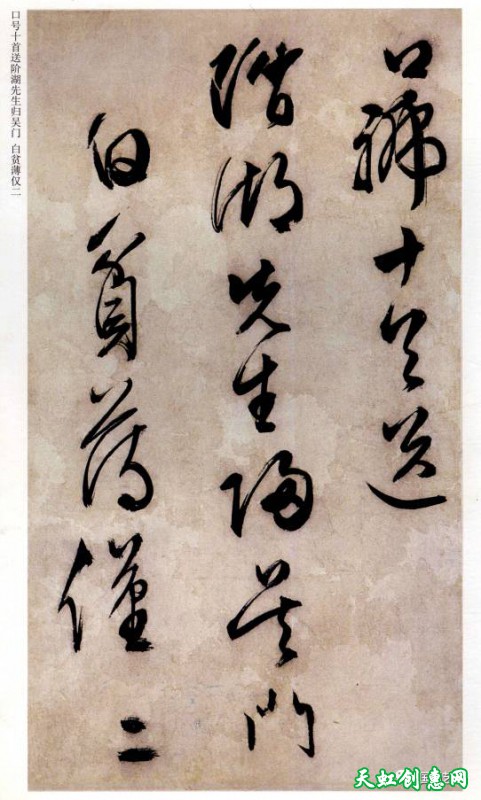 口号十首送阶湖先生归吴门 白贫薄仅二
口號十首送
階湖先生歸吴門
白貧薄僅二
天虹创意网